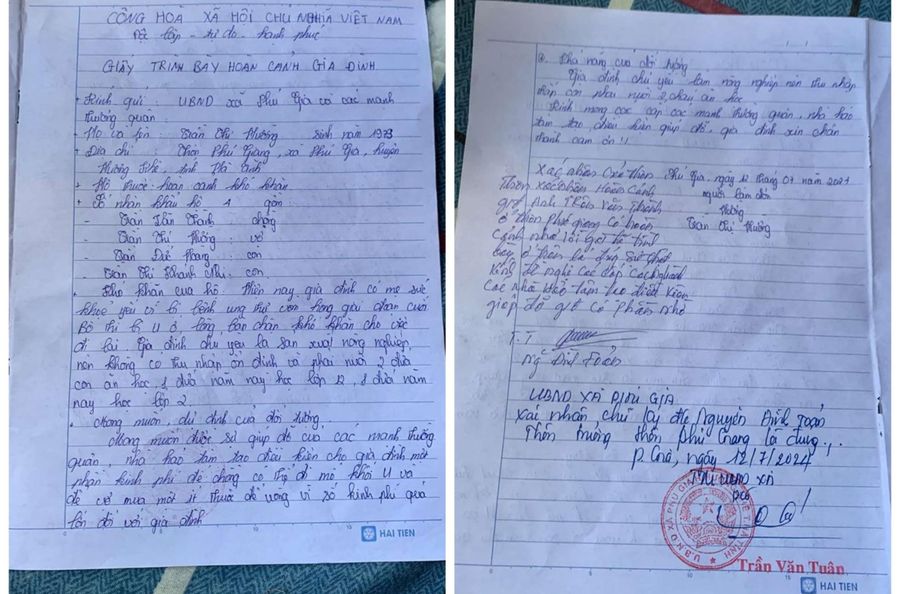 CÔNG HOÀ XÃ HỘI CHỦ NGHĨA VIỆT NAM
Độc lập - tự do - hạnh phúc
GIẤY TRÌNH BÀY HOÀN CẢNH GIA ĐÌNH
+ Kính gửi : UBND xã Phú Gia và các mạnh
thường quân
+ Họ và tên : Trần Thị Thường sinh năm 1973
+ Địa chỉ : Thôn Phú Giang, xã Phú Gia, huyện
Hương Khê, tỉnh Hà tĩnh
+ Hộ thuộc : hoàn cảnh khó khăn
+ Số nhân khẩu hộ 4 gồm
- Trần Văn Thành : chồng
- Trần Thị Thường : vợ
- Trần Hoàng : con
- Trần Thị Khánh : con
- Khó khăn của hộ : Hiện nay gia đình có mẹ sức
khoẻ yếu vì bị bệnh ung thư vòm họng giai đoạn cuối
Bố thì bị u ở lòng bàn chân khó khăn cho việc
đi lại. Gia đình chủ yếu là sản xuất nông nghiệp,
nên không có thu nhập ổn định và phải nuôi 2 đứa
con ăn học, 1 đứa năm nay học lớp 12, 1 đứa năm
nay học lớp 2
- Mong muốn, dự định của đối tượng
Mong muốn được sự giúp đỡ của các mạnh thường
quân, nhà hảo tâm tạo điều kiện cho gia đình một
phần kinh phí để chồng có thể đi mổ khối U và
để vợ mua một ít thuốc để uống vì số kinh phí quá
lớn đối với gia đình
HAI TIEN
Khả năng của đối tượng
Gia đình chủ yếu làm nông nghiệp nên thu nhập
thấp còn phải nuôi 2 cháu ăn học
Kính mong các cấp các mạnh thường quân, nhà hảo
tâm tạo điều kiện giúp đỡ, gia đình xin chân
thành cảm ơn !
Xác nhận của thôn Phú Gia, ngày 12 tháng 07 năm 2024
Thôn xác nhận Hoàn Cảnh người làm đơn
gđ Anh Trần Văn Thành Thường
ở thôn Phú giang có hoàn Trần Thị Thường
Cảnh như lời gđ đã trình
bày ở trên là đúng sự thật
Kính đề nghị các cấp các
các nhà Hảo tâm tạo điều kiện
giúp đỡ gđ có phần nhỏ
T.T
Ng Đình Toản
UBND XÃ PHÚ GIA
Xác nhận chữ ký của Nguyễn Đình Toản
Thôn trưởng thôn Phú Giang là đúng.
P. Gia, ngày 12/7/2024
TM UBND XÃ
PCT
Trần Văn Tuân
HAI TIEN